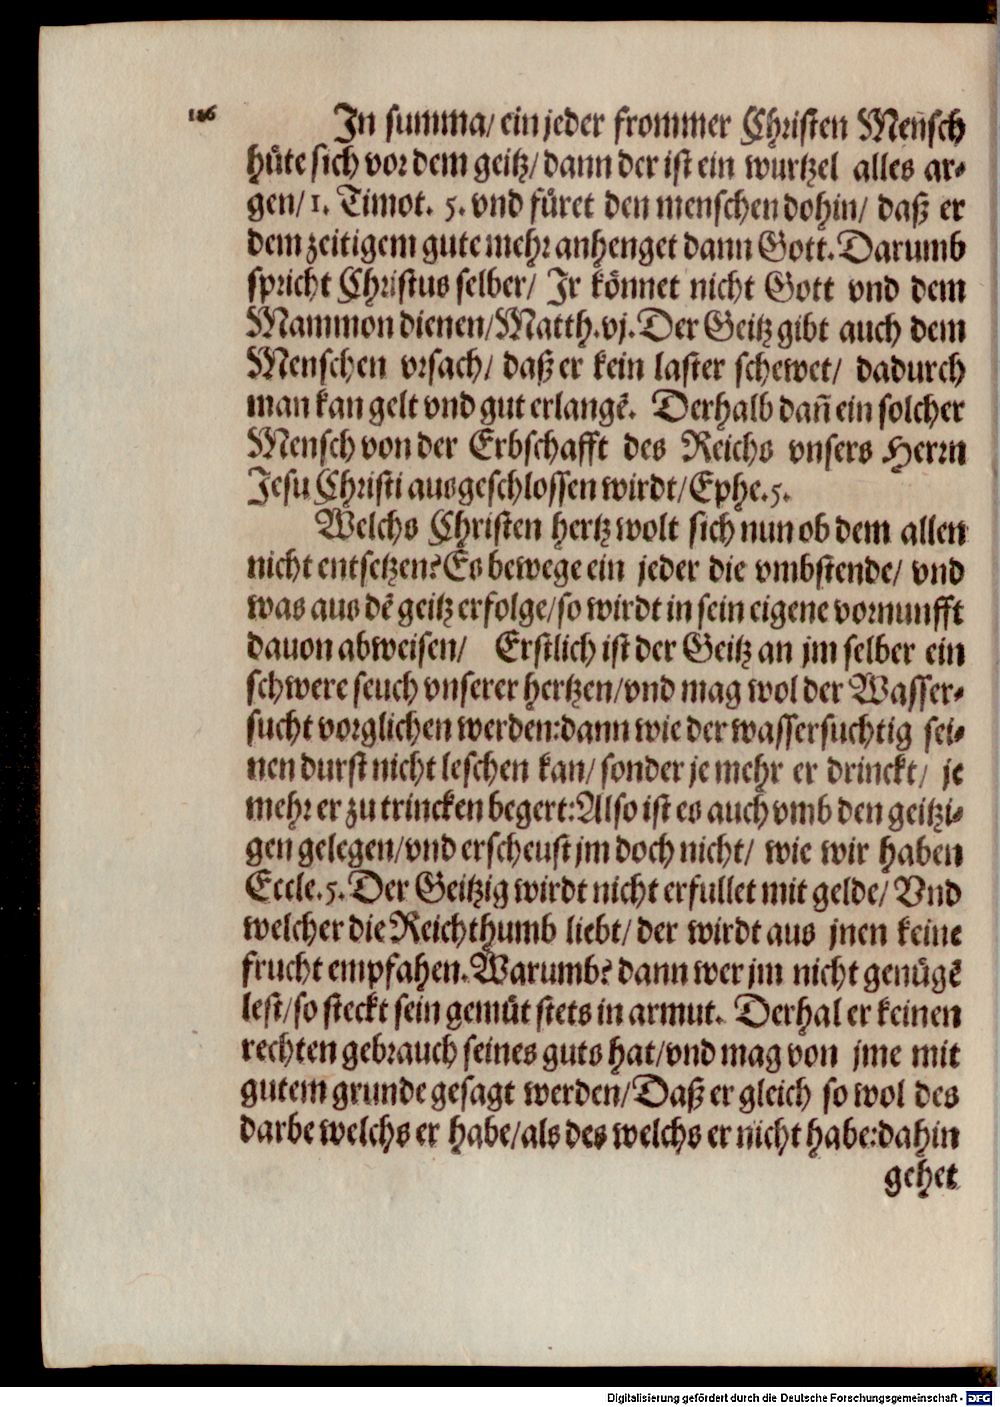 186
In summa/ ein jeder frommer Christen Mensch
hüte sich vor dem geitz/ dann der ist ein wurtzel alles ar-
gen/ 1. Timot. 5. vnd füret den menschen dohin/ daß er
dem zeitigem gute mehr anhenget dann Gott. Darumb
spricht Christus selber/ Ir können nicht Gott vnd dem
Mammon dienen/ Matth. vj. Der Geitz gibt auch dem
Menschen vrsach/ daß er kein laster schewet/ dadurch
man kan gelt vnd gut erlangē. Derhalb dañ ein solcher
Mensch von der Erbschafft des Reichs vnsers Herrn
Jesu Christi ausgeschlossen wirdt/ Ephe. 5.
Welchs Christen hertz wolt sich nun ob dem allen
nicht entsetzen? Es bewege ein jeder die vmbstende/ vnd
was aus dē geitz erfolge/ so wirdt in sein eigene vornunfft
dauon abweisen/ Erstlich ist der Geitz an jm selber ein
schwere seuch vnserer hertzen/ vnd mag wol der Wasser-
sucht vorglichen werden: dann wie der wassersuchtig sei-
nen durst nicht leschen kan/ sonder je mehr er drinckt/ je
mehr er zu trincken begert: Also ist es auch vmb den geitzi-
gen gelegen/ vnd erscheust jm doch nicht/ wie wir haben
Eccle. 5. Der Geitzig wirdt nicht erfullet mit gelde/ Vnd
welcher die Reichthumb liebt/ der wirdt aus jnen keine
frucht empfahen. Warumb? dann wer jm nicht genügē
lest/ so steckt sein gemüt stets in armut. Derhal er keinen
rechten gebrauch seines guts hat/ vnd mag von jme mit
gutem grunde gesagt werden/ Daß er gleich so wol des
darbe welchs er habe/ als des welchs er nicht habe: dahin
gehet
Digitalisierung gefördert durch die Deutsche Forschungsgemeinschaft - DFG